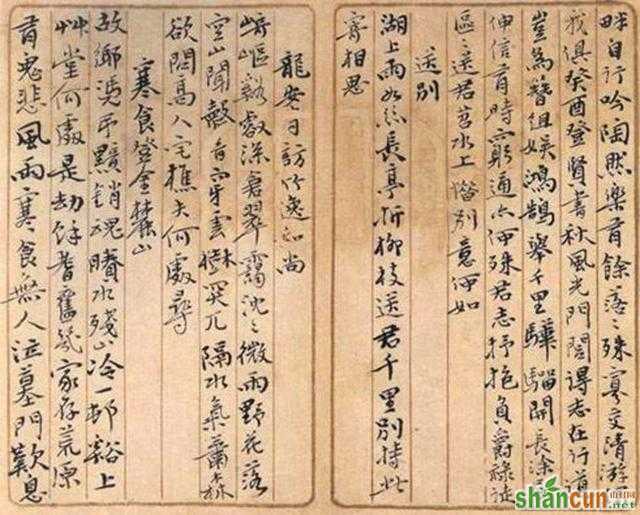 畔自行吟陶然樂有餘落々殊寡交清游
我俱癸酉登賢書秋風光門閭得志在行道
豈為簪組娱鴻鵠舉千里驊騮開長途
伸信有時窮通亦何殊君志抒抱負爵祿徒
區送君苕水上惜別意何如
送別
湖上雨如絲長亭折柳枝送君千里別持此
寄相思
龍安日訪竹逸和尚
崎嶇谿壑深翠靄沈々微雨野花落
空山聞磬音穿雲突兀隔水氣蕭森
欲問高人宅樵夫何處尋
寒食登金山
故鄉憑弔黯銷魂賸水殘山冷一邨谿上
艸堂何處是劫餘耆舊幾家存荒原
有鬼悲風雨寒食無人泣墓門歎息
shancun
.net